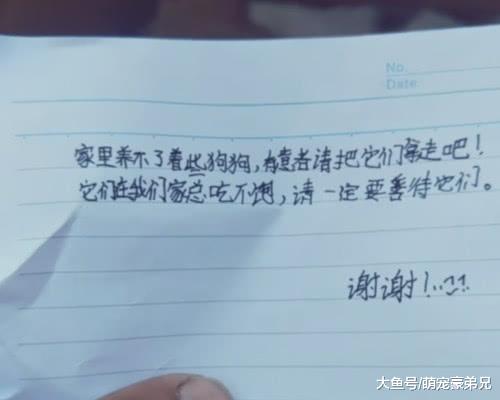 No.
Date
家里养不了着些狗狗,有意者请把它们带走吧!
它们在我们家总吃不饱,请一定要善待它们。
谢谢!
大鱼号/萌宠豪弟兄